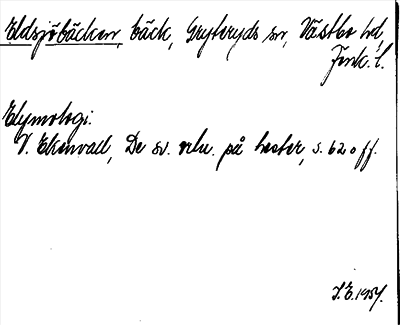 Eldsjöbäcken, bäck, Gryteryds sn, Västbo hd,
Jönk. l.
Etymologi:
V. Ekenvall, De sv. ortn. på hester, s. 620 ff.
V.E. 1957.